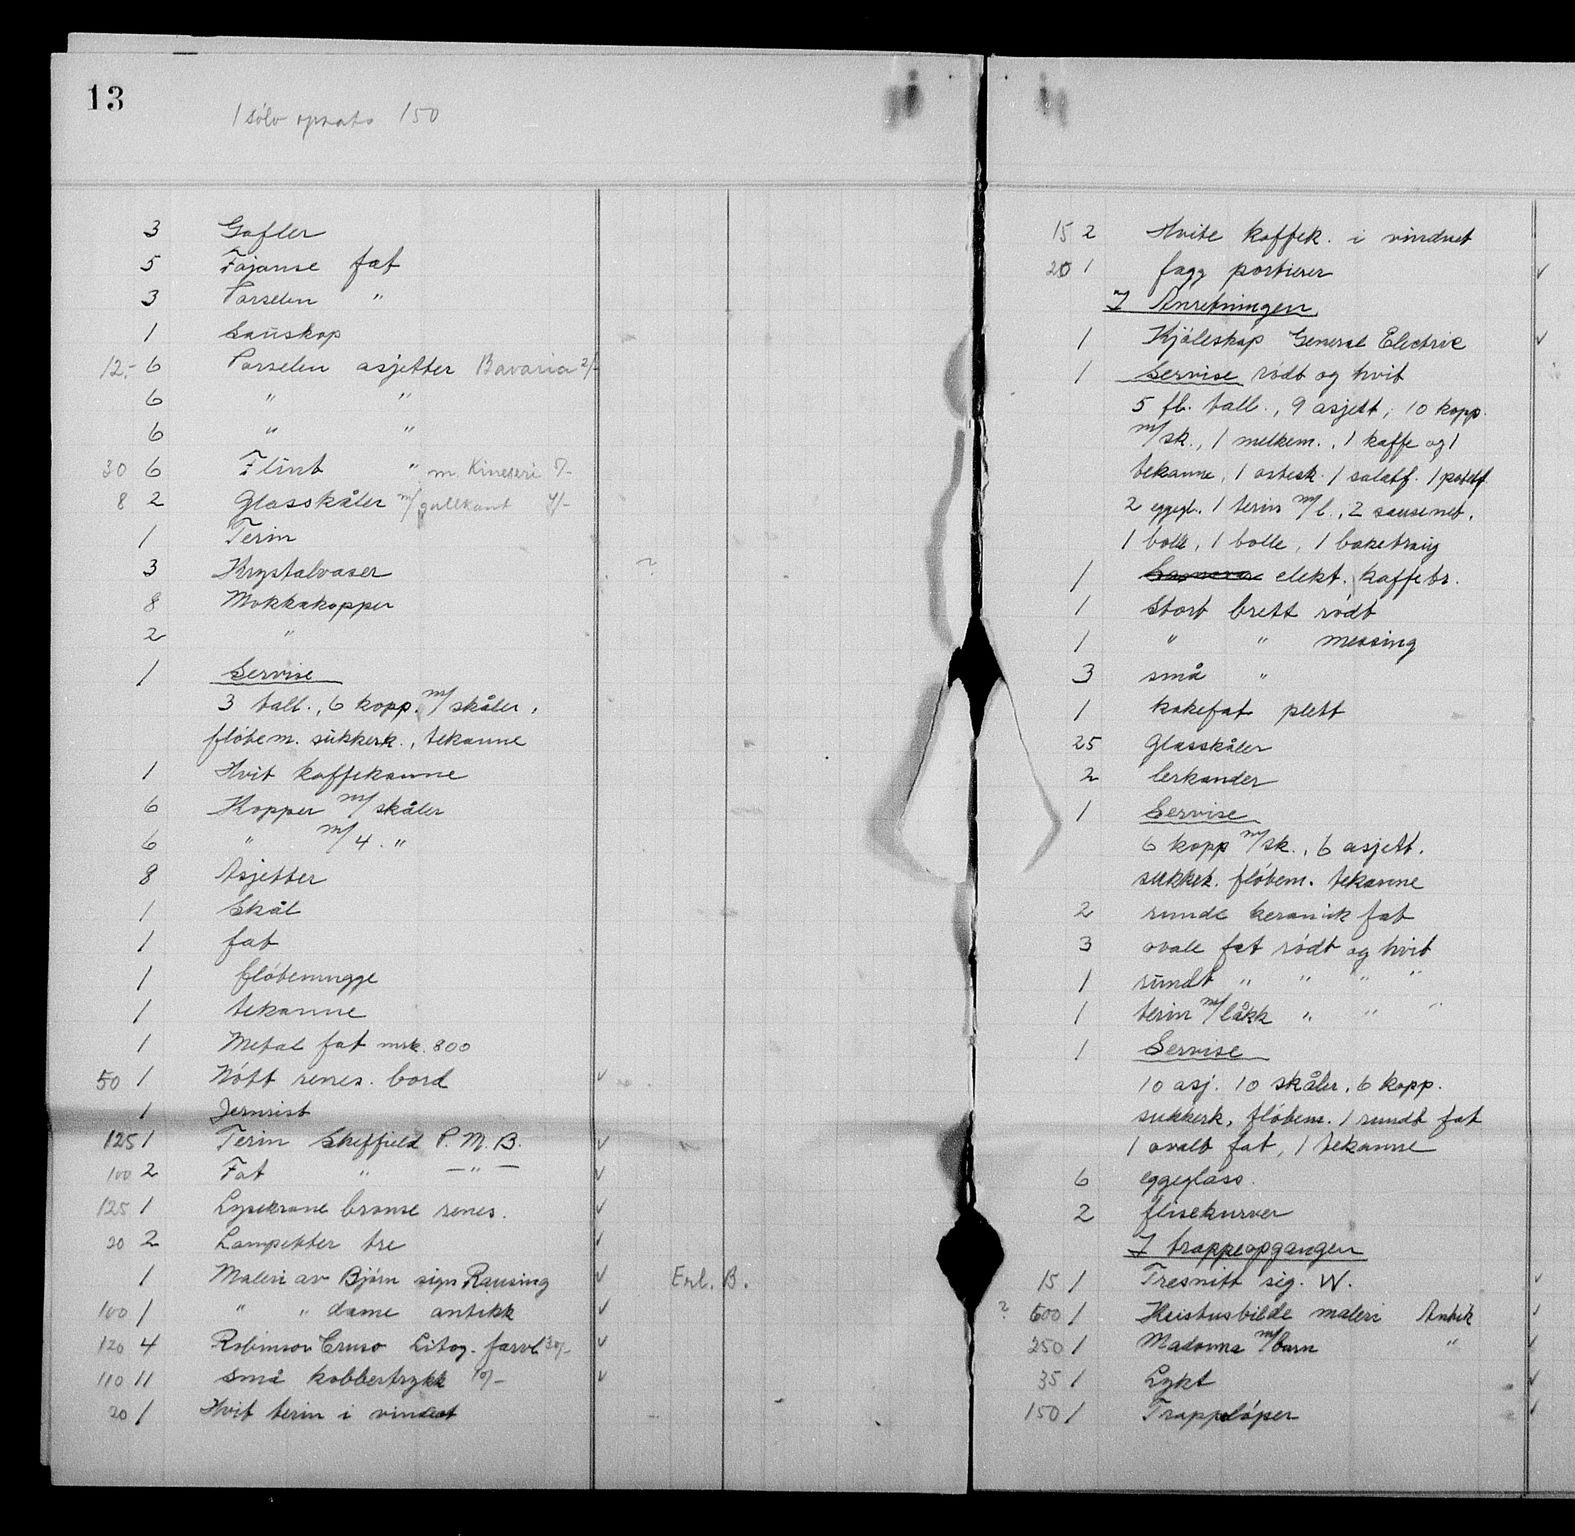 13
1 sölv opsats 150
3 Gafler
5 Fajanse fat
3 Porselen "
1 Sauskop
12.- 6 Porselen asjetter Bavaria 2/-
6 " "
6 " "
30 6 Flint " m. Kineseri 5/-
8 2 Glasskåler m/ gullkant 4/-
1 Terin
3 Krystalvaser ?
8 Mokkakopper
2 "
1 Servise
3 tall., 6 kopp. m/ skåler,
flötem. sukkerk., tekanne
1 Hvit kaffekanne
6 Kopper m/ skåler
6 " m/ 4. "
8 Asjetter
1 Skål
1 fat
1 flötemugge
1 tekanne
1 Metal fat mrk. 800
50 1 Nött renes. bord
1 Jernrist
125 1 Terin Sheffield P. M. B.
100 2 Fat " — " —
125 1 Lysekrone bronse renes.
20 2 Lampetter tre
1 Maleri av Björn sign Rausing Enl. B.
100 1 " " dame antikk
120 4 Robinson Cruso Litog. farvl 30/-
110 11 små kobbertrykk 10/-
20 1 Hvit terin i vinduet
15 2 Hvite kaffek. i vinduet
20 1 fagg portierer
I Anretningen
1 Kjöleskap General Electric
1 Servise rödt og hvit
5 fl. tall., 9 asjett, 10 kopp.
m/sk., 1 melkem., 1 kaffe og 1
tekanne, 1 ostesk. 1 salatf. 1 potetf
2 eggegl. 1 terin m/l., 2 sauseneb,
1 boll, 1 bolle, 1 baketraug
1 elekt. kaffetr.
1 Stort brett rödt
1 " " messing
3 små "
1 kakefat plett
25 Glasskåler
2 lerkander
1 Servise
6 kopp m/sk., 6 asjett.
sukkek. flötem. tekanne
2 runde keramik fat
3 ovale fat rödt og hvit
1 rundt " " " "
1 terin m/låkk " " "
1 Servise
10 asj. 10 skåler, 6 kopp.
sukkerk, flötem. 1 rundt fat
1 ovalt fat, 1 tekanne
6 eggeglass.
2 flisekurver
I trappeopgangen
15 1 Tresnitt sig. W.
? 600 1 Kristusbilde maleri Antik
250 1 Madonna m/barn "
35 1 Lykt
150 1 Trappelöper